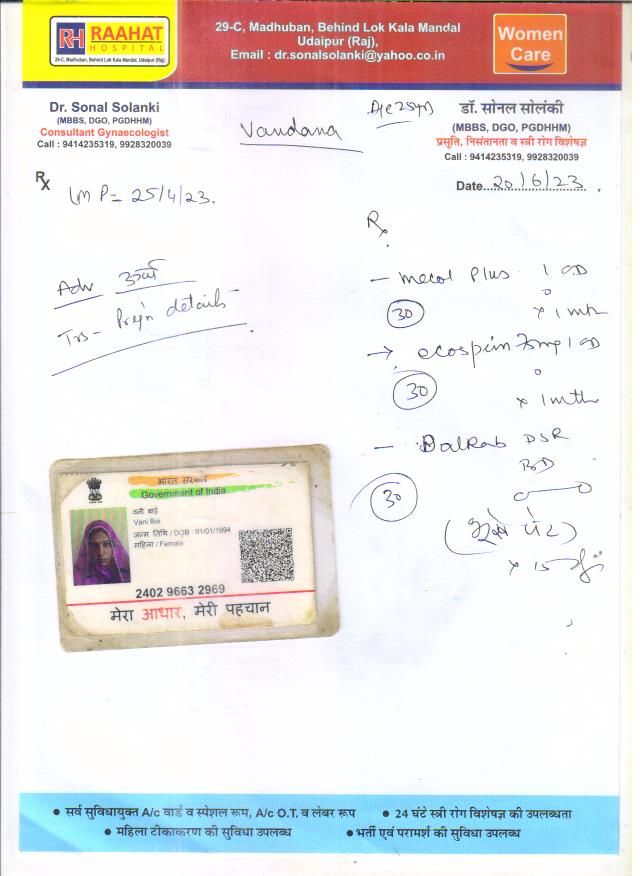 RH RAAHAT
HOSPITAL
29-C, Madhuban, Behind Lok Kala Mandal, Udaipur (Raj)
29-C, Madhuban, Behind Lok Kala Mandal
Udaipur (Raj),
Email : dr.sonalsolanki@yahoo.co.in
Women
Care
Dr. Sonal Solanki
(MBBS, DGO, PGDHHM)
Consultant Gynaecologist
Call : 9414235319, 9928320039
Vandana
डॉ. सोनल सोलंकी
(MBBS, DGO, PGDHHM)
प्रसूति, निसंतानता व स्त्री रोग विशेषज्ञ
Call : 9414235319, 9928320039
Date 20/6/23
Rx
LMP = 25/4/23.
Adv
details
Rx
- Mecol Plus 1 OD
30 x 1 mth
→ ecosprin 75mg 1 OD
30 x 1 mth
- DSR
BD
30
x 15
भारत सरकार
Government of India
वनी बाई
Vani Bai
जन्म तिथि / DOB : 01/01/1994
महिला / Female
2402 9663 2969
मेरा आधार, मेरी पहचान
• सर्व सुविधायुक्त A/c वार्ड व स्पेशल रूम, A/c O.T. व लेबर रूप • 24 घंटे स्त्री रोग विशेषज्ञ की उपलब्धता
• महिला टीकाकरण की सुविधा उपलब्ध • भर्ती एवं परामर्श की सुविधा उपलब्ध